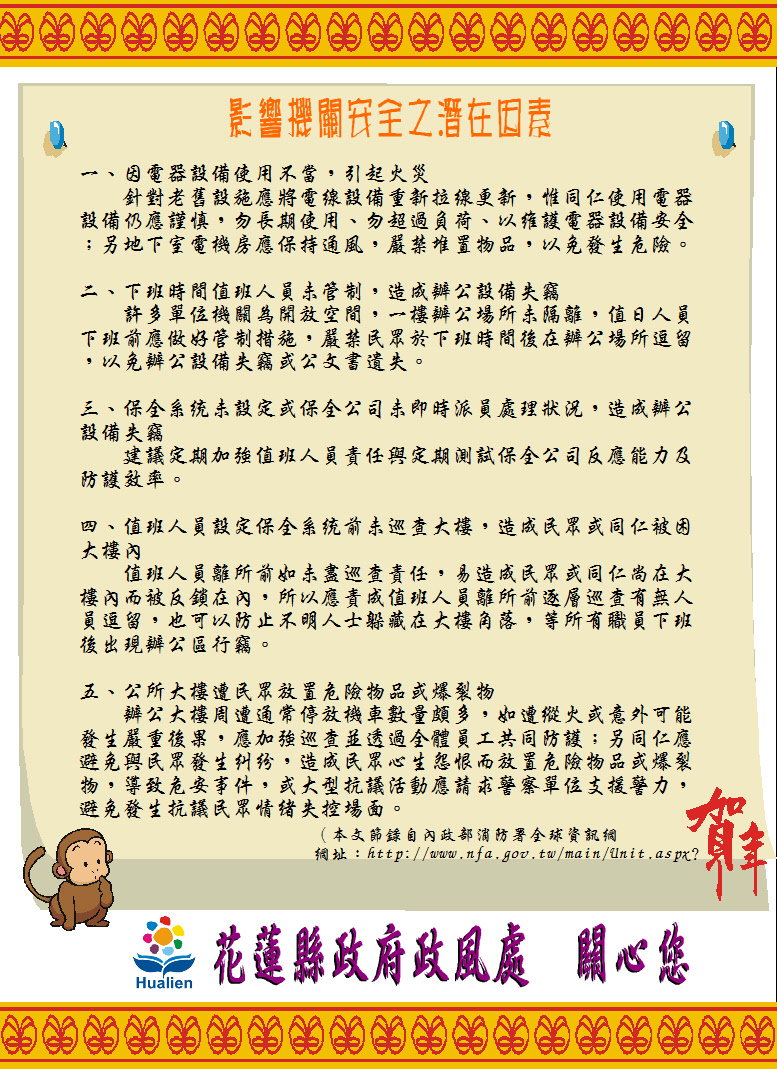 影響機關安全之潛在因素
一、因電器設備使用不當，引起火災
針對老舊設施應將電線設備重新拉線更新，惟同仁使用電器
設備仍應謹慎，勿長期使用、勿超過負荷、以維護電器設備安全
；另地下室電機房應保持通風，嚴禁堆置物品，以免發生危險。
二、下班時間值班人員未管制，造成辦公設備失竊
許多單位機關為開放空間，一樓辦公場所未隔離，值日人員
下班前應做好管制措施，嚴禁民眾於下班時間後在辦公場所逗留
，以免辦公設備失竊或公文書遺失。
三、保全系統未設定或保全公司未即時派員處理狀況，造成辦公
設備失竊
建議定期加強值班人員責任與定期測試保全公司反應能力及
防護效率。
四、值班人員設定保全系統前未巡查大樓，造成民眾或同仁被困
大樓內
值班人員離所前如未盡巡查責任，易造成民眾或同仁尚在大
樓內而被反鎖在內，所以應責成值班人員離所前逐層巡查有無人
員逗留，也可以防止不明人士躲藏在大樓角落，等所有職員下班
後出現辦公區行竊。
五、公所大樓遭民眾放置危險物品或爆裂物
辦公大樓周遭通常停放機車數量頗多，如遭縱火或意外可能
發生嚴重後果，應加強巡查並透過全體員工共同防護；另同仁應
避免與民眾發生糾紛，造成民眾心生怨恨而放置危險物品或爆裂
物，導致危安事件，或大型抗議活動應請求警察單位支援警力，
避免發生抗議民眾情緒失控場面。
（本文節錄自內政部消防署全球資訊網
網址：http://www.nfa.gov.tw/main/Unit.aspx?
賀年
Hualien
花蓮縣政府政風處 關心您